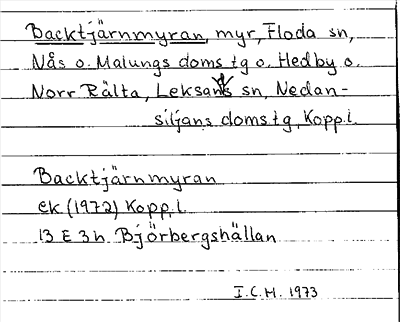 Backtjärnmyran, myr, Floda sn,
Nås o. Malungs doms.tg o. Hedby o.
Norr Rälta, Leksands sn, Nedan-
siljans doms.tg, Kopp.l.
Backtjärnmyran
ek (1972) Kopp.l.
13 E 3h Björbergshällan
I.C.H. 1973